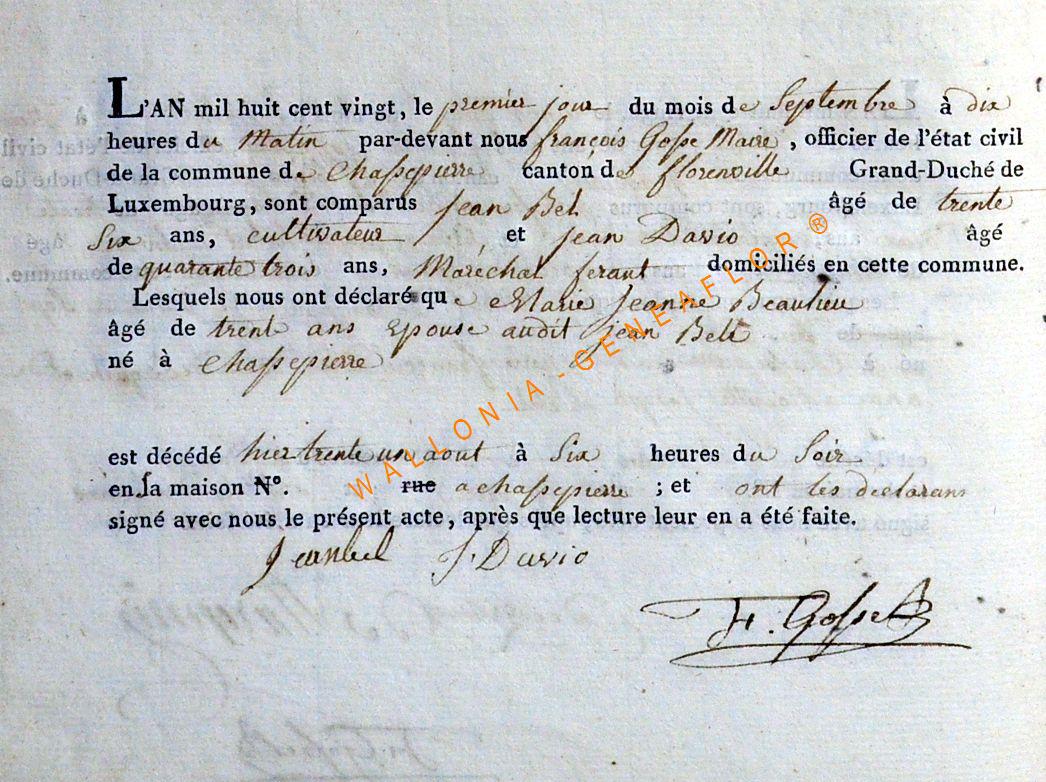 L'AN mil huit cent vingt, le premier jour du mois de Septembre à dix
heures du Matin par-devant nous françois Gosse Maire, officier de l'état civil
de la commune de Chassepierre canton de florenville Grand-Duché de
Luxembourg, sont comparus Jean Bel âgé de trente
Six ans, cultivateur et jean Davio âgé
de quarante trois ans, Maréchal ferant domiciliés en cette commune.
Lesquels nous ont déclaré que Marie Jeanne Beaulieu
âgé de trent ans Epouse audit jean Bell
né à Chassepierre
est décédé hier trente un aout à Six heures du Soir
en sa maison N°. rue a chassepierre ; et ont les declarans
signé avec nous le présent acte, après que lecture leur en a été faite.
Jeanbel J. Davio
F. Gosse
WALLONIA - GENEAFLOR ®